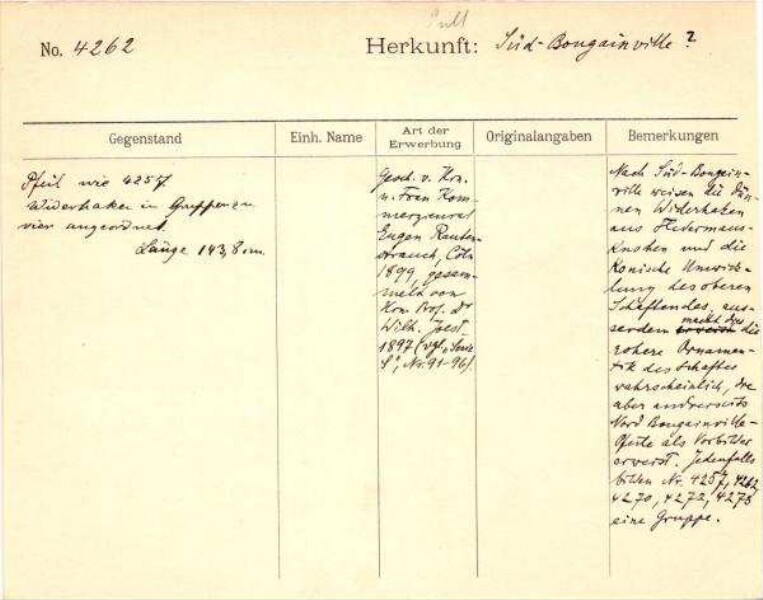 No. 4262
Herkunft: Süd-Bougainville?
Gegenstand
Einh. Name
Art der
Erwerbung
Originalangaben
Bemerkungen
Pfeil wie 4257.
Widerhaken in Gruppen zu
vier angeordnet.
Länge 143,8 cm.
Gesch. v. Hrn.
u. Frau Kom-
merzienrat
Eugen Rauten-
strauch, Cöln
1899, gesam-
melt von
Hrn Prof. Dr
Wilh. Joest
1897 (vgl. „Serie
S", Nr. 91-96).
Nach Süd-Bougain-
ville weisen die dün-
nen Widerhaken
aus Fledermaus-
knochen und die
konische Umwick-
lung des oberen
Schaftendes, aus-
serdem macht dies die
rohere Ornamen-
tik des Schaftes
wahrscheinlich, die
aber andrerseits
Nord Bougainville-
Pfeile als Vorbilder
erweist. Jedenfalls
bilden Nr. 4257, 4262,
4270, 4272, 4278
eine Gruppe.